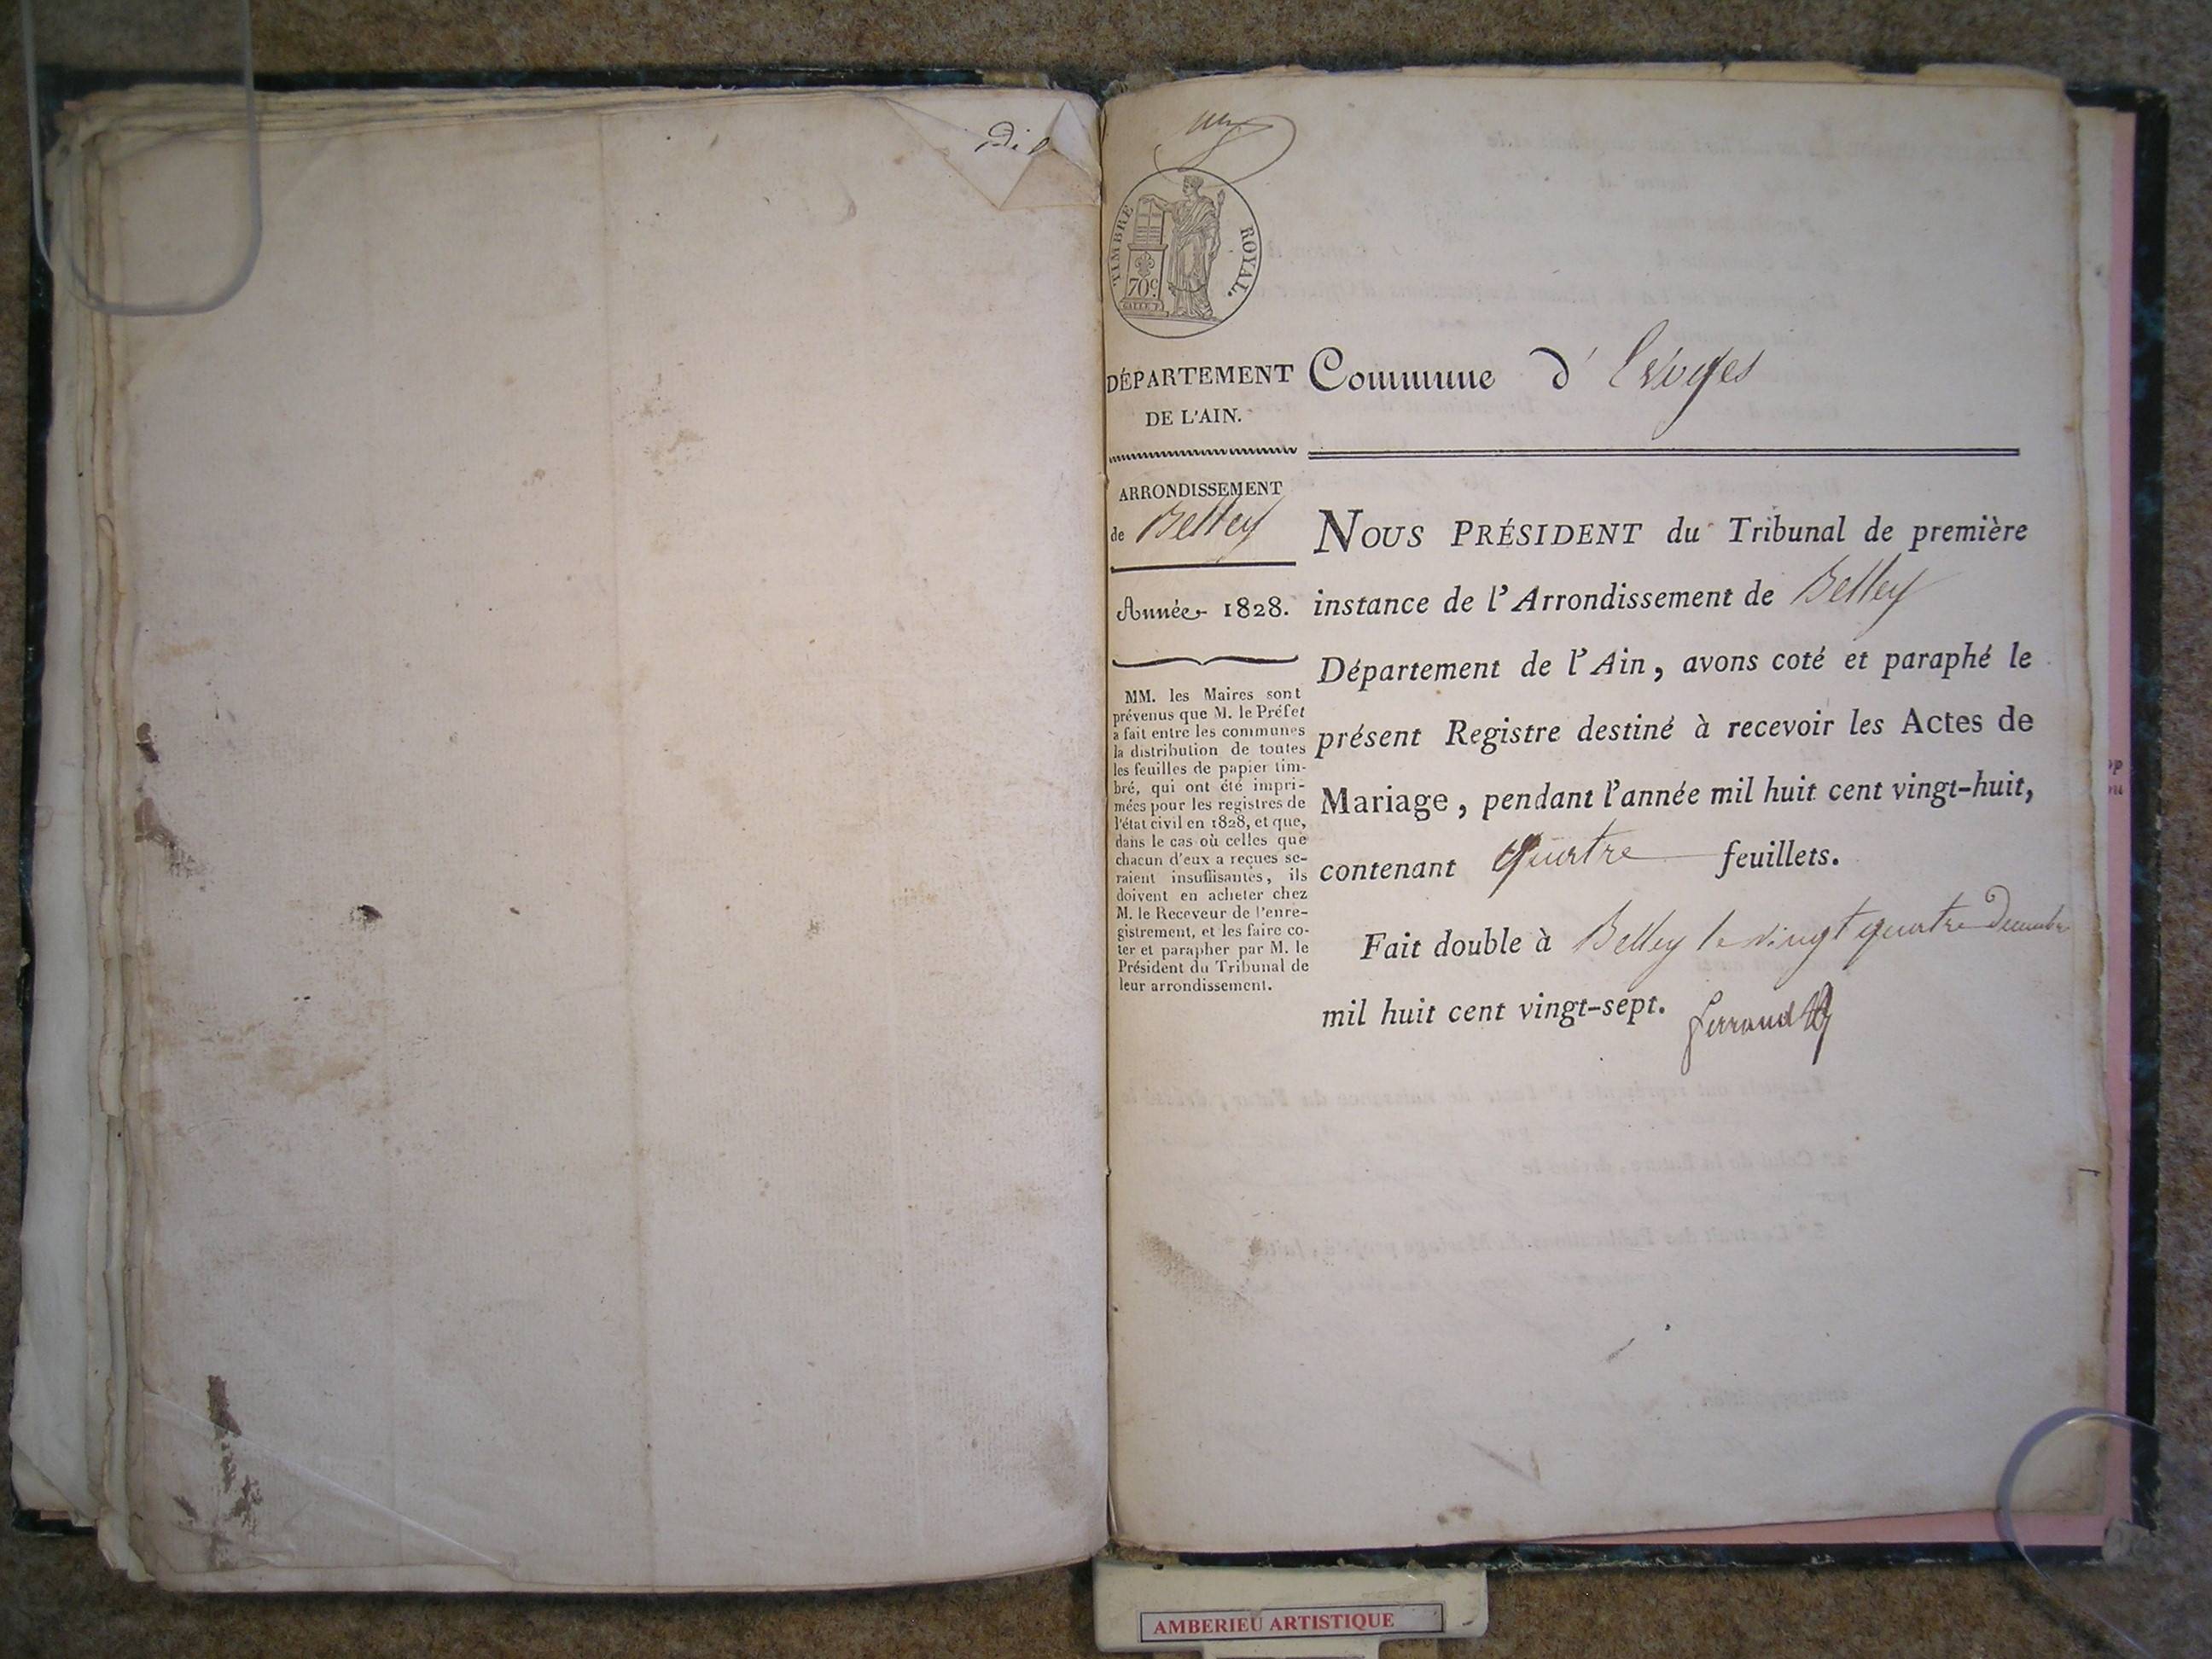 TIMBRE ROYAL.
70c
DÉPARTEMENT
DE L'AIN.
ARRONDISSEMENT
de Belley
Année 1828.
MM. les Maires sont
prévenus que M. le Préfet
a fait entre les communes
la distribution de toutes
les feuilles de papier tim-
bré, qui ont été impri-
mées pour les registres de
l'état civil en 1828, et que,
dans le cas où celles que
chacun d'eux a reçues se-
raient insuffisantes, ils
doivent en acheter chez
M. le Receveur de l'enre-
gistrement, et les faire co-
ter et parapher par M. le
Président du Tribunal de
leur arrondissement.
Commune d' Evoges
NOUS PRÉSIDENT du Tribunal de première
instance de l'Arrondissement de Belley
Département de l'Ain, avons coté et paraphé le
présent Registre destiné à recevoir les Actes de
Mariage, pendant l'année mil huit cent vingt-huit,
contenant quatre feuillets.
Fait double à Belley le vingt quatre Decembre
mil huit cent vingt-sept. ferraud
AMBERIEU ARTISTIQUE